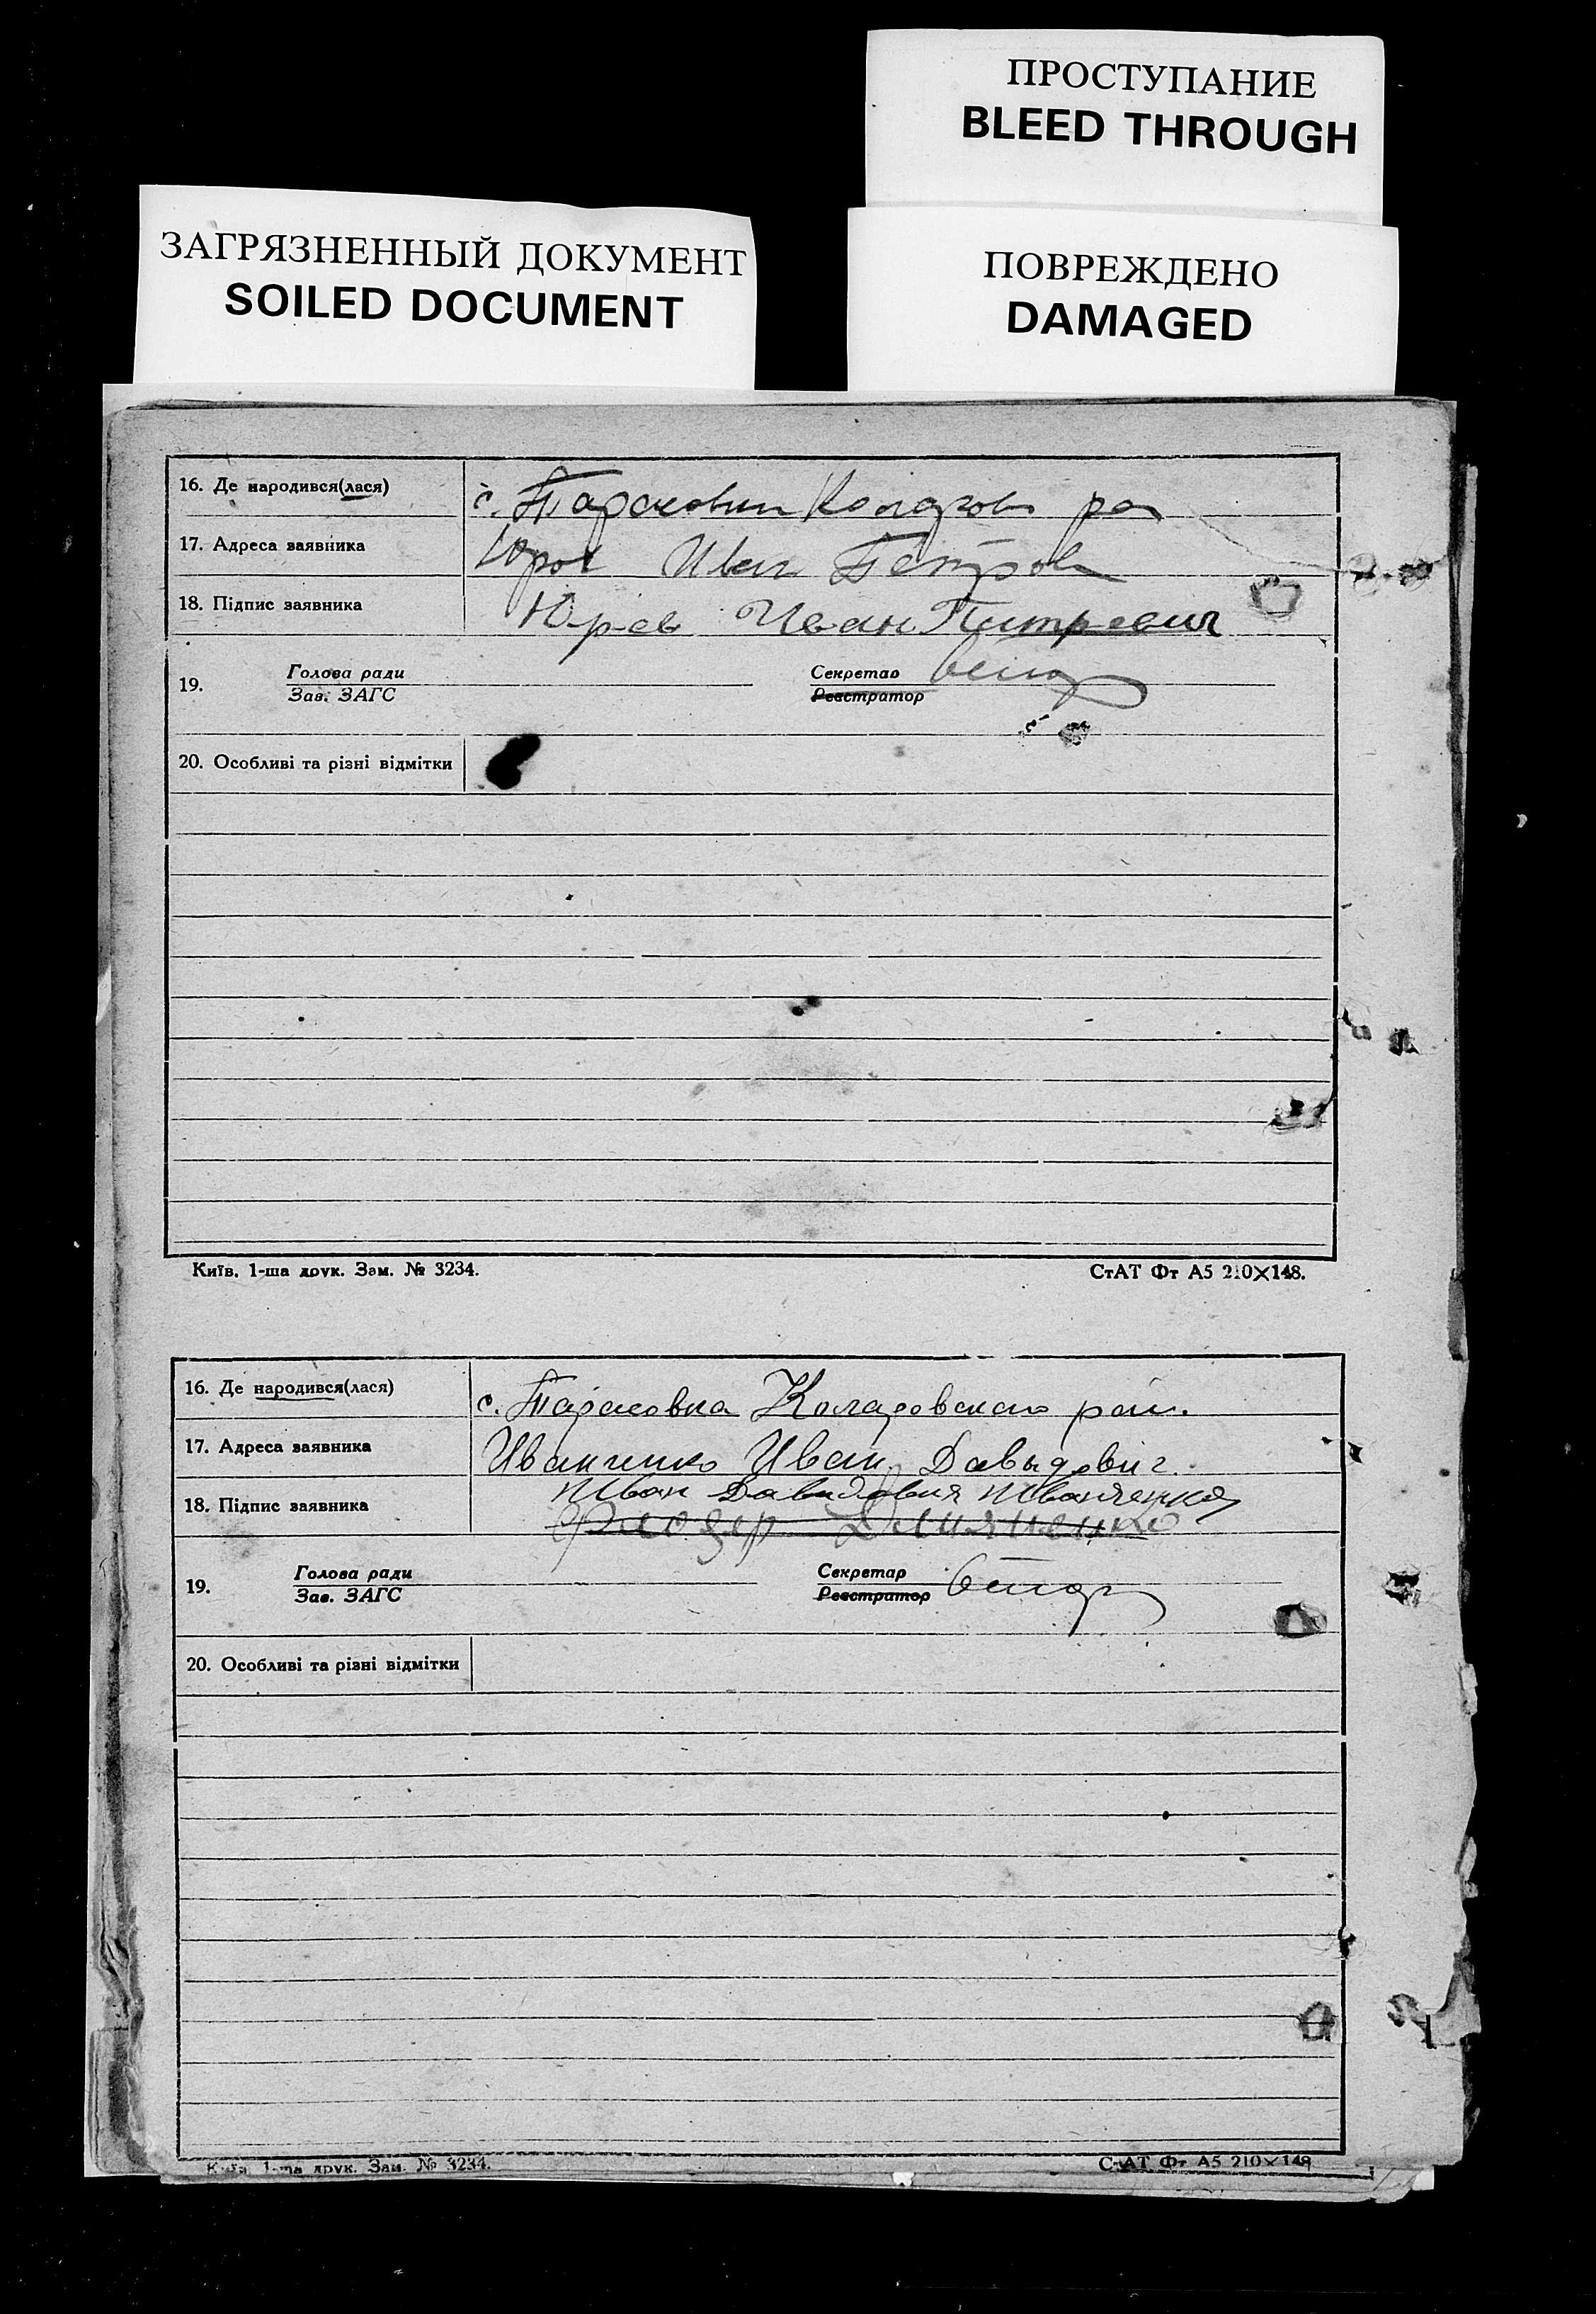 ПРОСТУПАНИЕ
BLEED THROUGH
ЗАГРЯЗНЕННЫЙ ДОКУМЕНТ
SOILED DOCUMENT
ПОВРЕЖДЕНО
DAMAGED
16. Де народився(лася)
17. Адреса заявника
Иван Петров
18. Підпис заявника
Юрев Иван Питревич
19. Голова ради Секретар
Зав. ЗАГС Реєстратор
20. Особливі та різні відмітки
Київ. 1-ша друк. Зам. № 3234. СтАТ Фт А5 210×148.
16. Де народився(лася) с. Тарасовка Коларовского рай.
17. Адреса заявника Иванченко Иван Давыдович.
18. Підпис заявника Иван Иванченко
19. Голова ради Секретар
Зав. ЗАГС Реєстратор
20. Особливі та різні відмітки
Київ. 1-ша друк. Зам. № 3234. СтАТ Фт А5 210×148